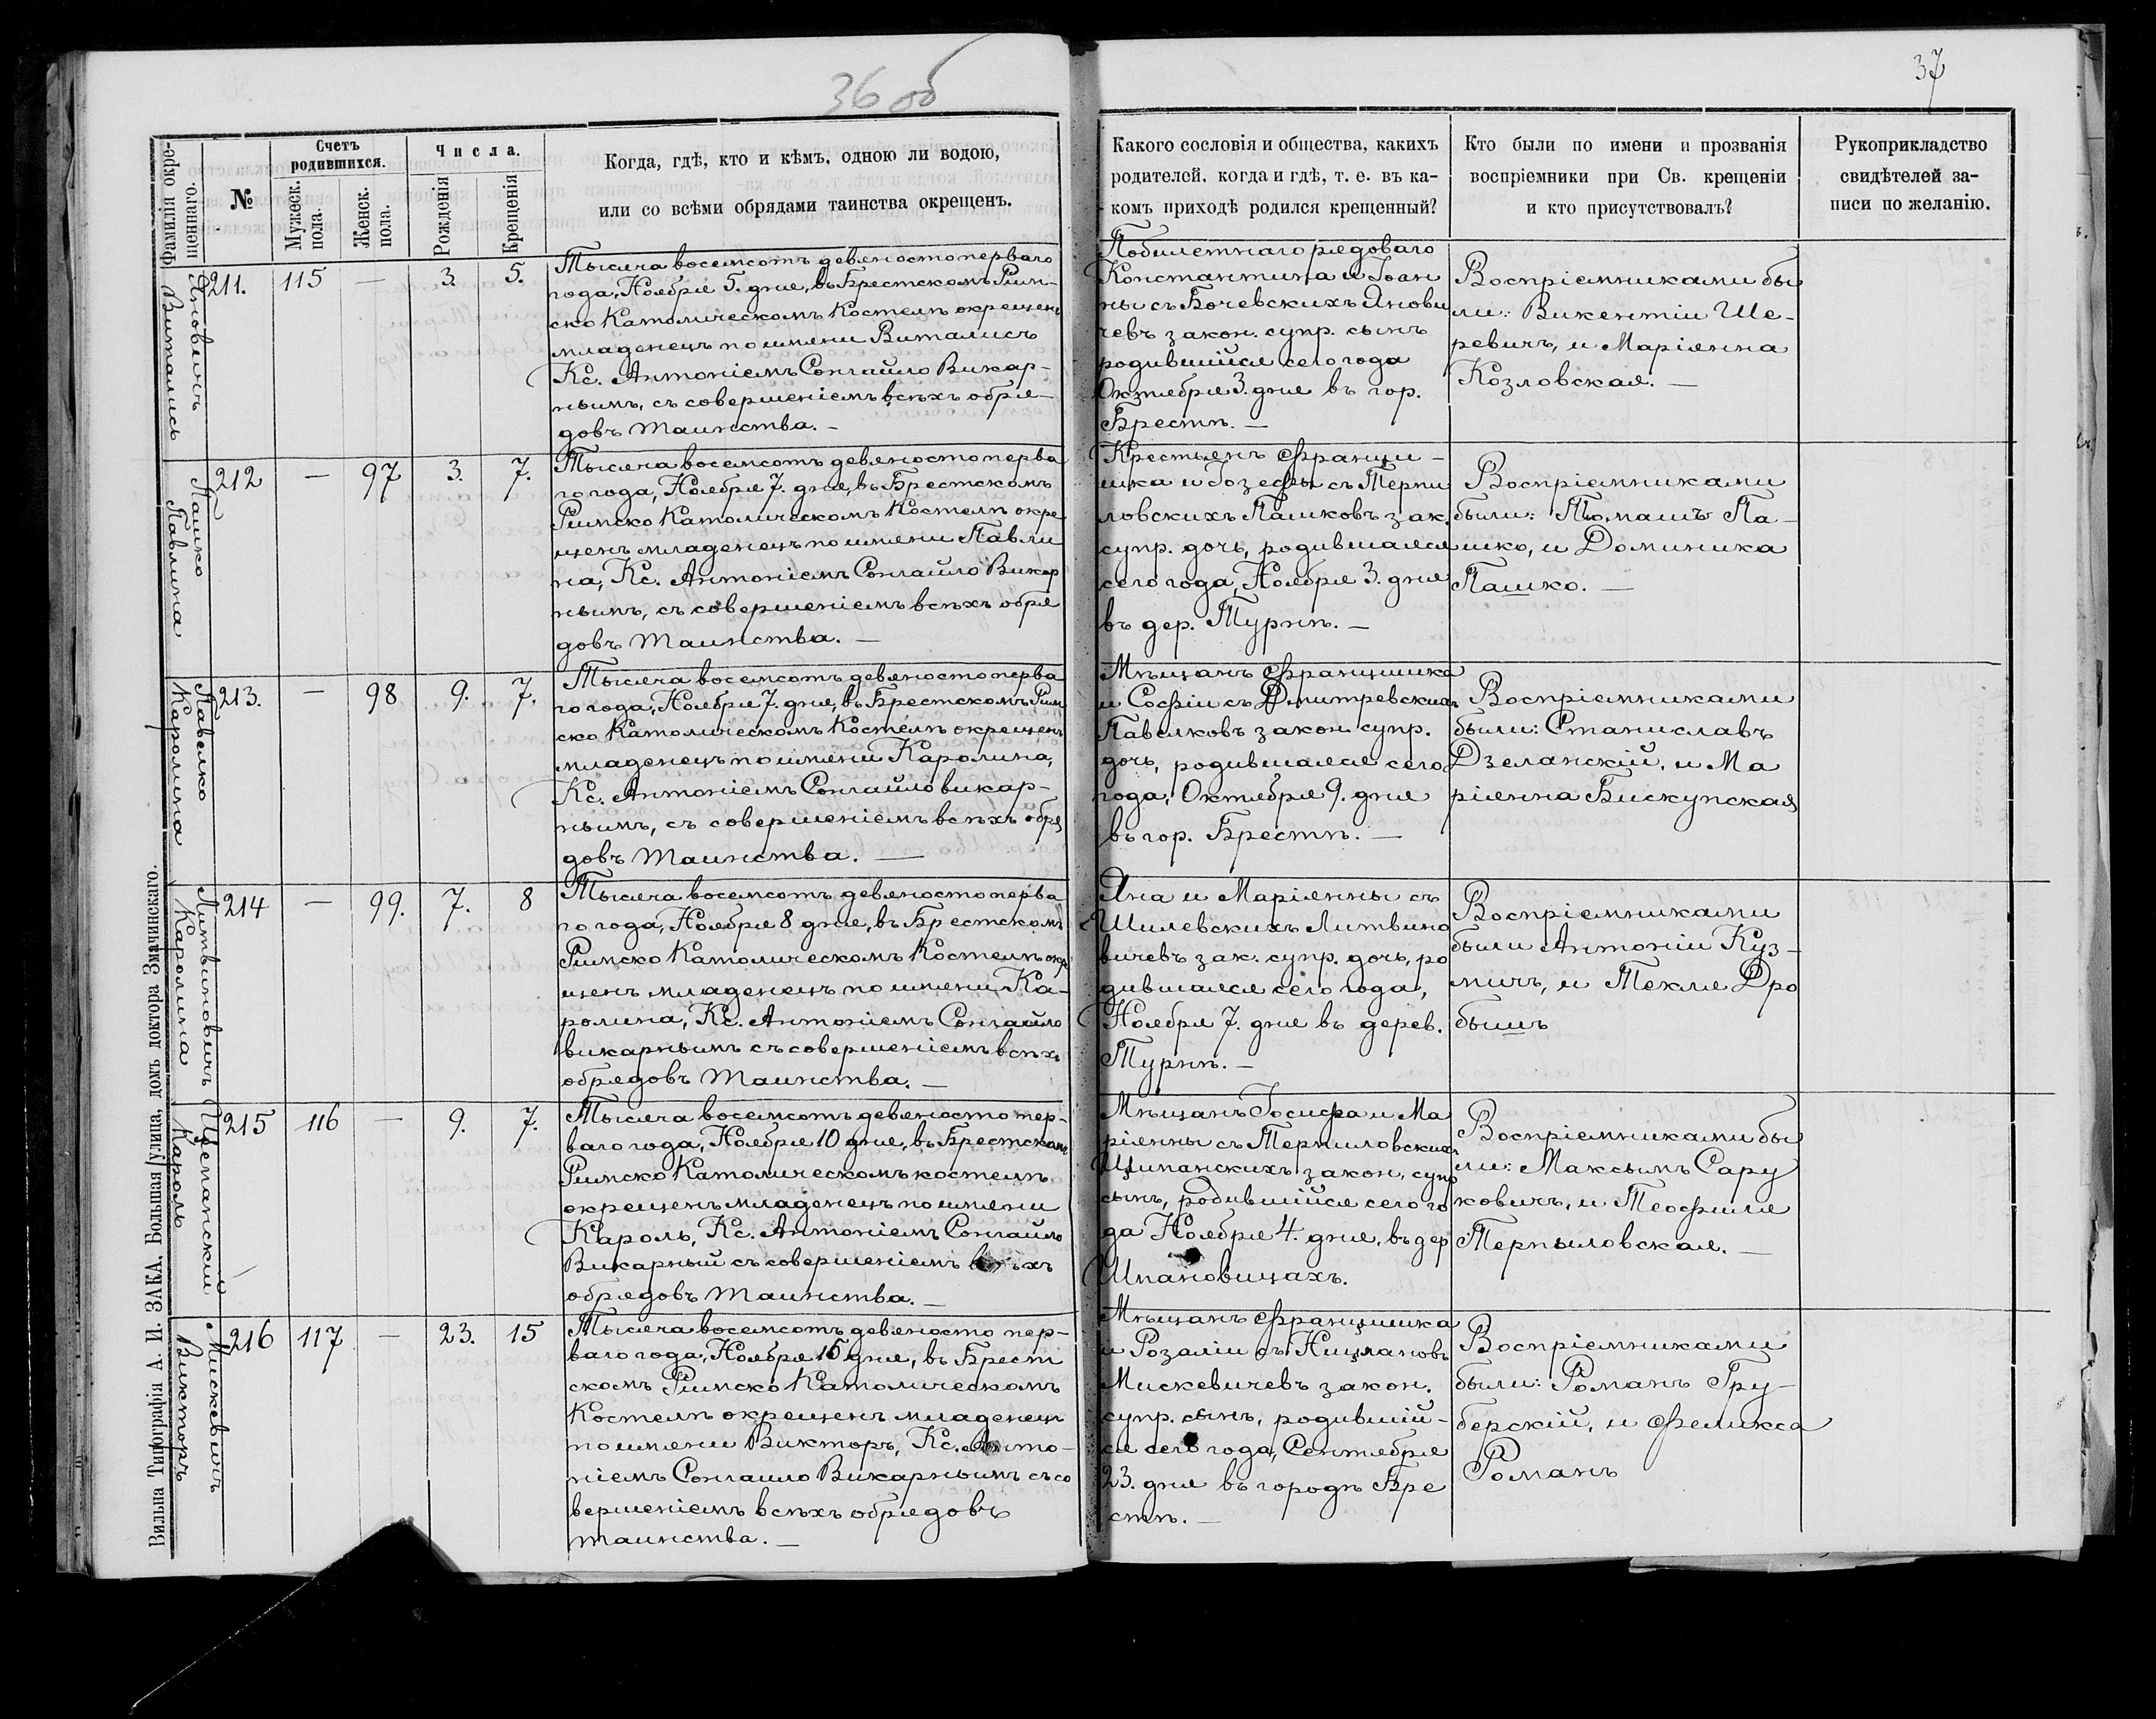 36 об
37
Фамилія окре-
щеннаго.
№
Счетъ
родившихся.
Мужеск.
пола.
Женск.
пола.
Числа.
Рожденія
Крещенія
Когда, гдѣ, кто и кѣмъ, одною ли водою,
или со всѣми обрядами таинства окрещенъ.
Какого сословія и общества, какихъ
родителей, когда и гдѣ, т. е. въ ка-
комъ приходѣ родился крещенный?
Кто были по имени и прозванія
воспріемники при Св. крещеніи
и кто присутствовалъ?
Рукоприкладство
свидѣтелей за-
писи по желанію.
Яновичъ
Виталисъ
211. 115 — 3. 5.
Тысяча восемсотъ девяносто перваго
года, Ноября 5. дня, въ Брестскомъ Рим-
ско Католическомъ Костелѣ окрещенъ
младенецъ по имени Виталисъ
Кс. Антоніемъ Сонгайло Викар-
нымъ, съ совершеніемъ всѣхъ обря-
довъ Таинства. —
Побилетнаго рядоваго
Константина и Іоан
ны съ Бочевскихъ Янови
чевъ закон. супр. сынъ
родившійся сего года
Октября 3. дня въ гор.
Брестѣ. —
Воспріемниками бы
ли: Викентіи Ше-
ревичъ, и Маріянна
Козловская. —
Пашко
Павлина
212 — 97 3. 7.
Тысяча восемсотъ девяносто перва
го года, Ноября 7. дня, въ Брестскомъ
Римско Католическомъ Костелѣ окре
щенъ младенецъ по имени Павли
на, Кс. Антоніемъ Сонгайло Викар
нымъ, съ совершеніемъ всѣхъ обря
довъ Таинства. —
Крестьянъ Франци-
шка и Іозефы съ Терпи
ловскихъ Пашковъ зак.
супр. дочь, родившаяся
сего года, Ноября 3. дня
въ дер. Турнѣ. —
Воспріемниками
были: Томашъ Па-
шко, и Доминика
Пашко. —
Павелко
Каролина
213. — 98 9. 7.
Тысяча восемсотъ девяносто перва
го года, Ноября 7. дня, въ Брестскомъ Рим
ско Католическомъ Костелѣ окрещенъ
младенецъ по имени Каролина,
Кс. Антоніемъ Сонгайло викар-
нымъ, съ совершеніемъ всѣхъ обря
довъ Таинства. —
Мѣщанъ Францишка
и Софіи съ Дмитревскихъ
Павелковъ закон супр.
дочь, родившаяся сего
года, Октября 9. дня
въ гор. Брестѣ. —
Воспріемниками
были: Станиславъ
Дзеланскій, и Ма
ріянна Бискупская
Литвиновичъ
Каролина
214 — 99. 7. 8
Тысяча восемсотъ девяносто перва
го года, Ноября 8 дня, въ Брестскомъ
Римско Католическомъ Костелѣ окре
щенъ младенецъ по имени Ка-
ролина, Кс. Антоніемъ Сонгайло
викарнымъ съ совершеніемъ всѣхъ
обрядовъ Таинства. —
Яна и Маріянны съ
Шилевскихъ Литвино
вичевъ зак. супр. дочь, ро
дившаяся сего года,
Ноября 7. дня въ дерев.
Турнѣ. —
Воспріемниками
были Антоніи Куз-
мичъ, и Текля Дро
бышъ
Щепанскій
Кароль
215 116 — 9. 7.
Тысяча восемсотъ девяносто пер-
ваго года, Ноября 10 дня, въ Брестскомъ
Римско Католическомъ костелѣ
окрещенъ младенецъ по имени
Кароль, Кс. Антоніемъ Сонгайло
Викарный съ совершеніемъ всѣхъ
обрядовъ Таинства. —
Мѣщанъ Іосифа и Ма
ріянны съ Терпиловскихъ
Щипанскихъ закон. супр
сынъ, родившійся сего го
да Ноября 4. дня, въ дер
Шпановицахъ.
Воспріемниками бы
ли: Максымъ Сару
ковичъ, и Теофиля
Терпыловская. —
Мискевичъ
Викторъ
216 117 — 23. 15
Тысяча восемсотъ девяносто пер-
ваго года, Ноября 15 дня, въ Брест
скомъ Римско Католическомъ
Костелѣ окрещенъ младенецъ
по имени Викторъ, Кс. Анто-
ніемъ Сонгаило Викарнымъ съ со
вершеніемъ всѣхъ обрядовъ
таинства. —
Мѣщанъ Францишка
и Розаліи съ
Мискевичевъ закон.
супр. сынъ, родившій-
ся сего года, Сентября
23. дня въ городѣ Бре
стѣ. —
Воспріемниками
были: Романъ Гру-
берскій, и Феликса
Романъ
Вильна Типографія А. И. ЗАКА, Большая улица, домъ доктора Змачинскаго.